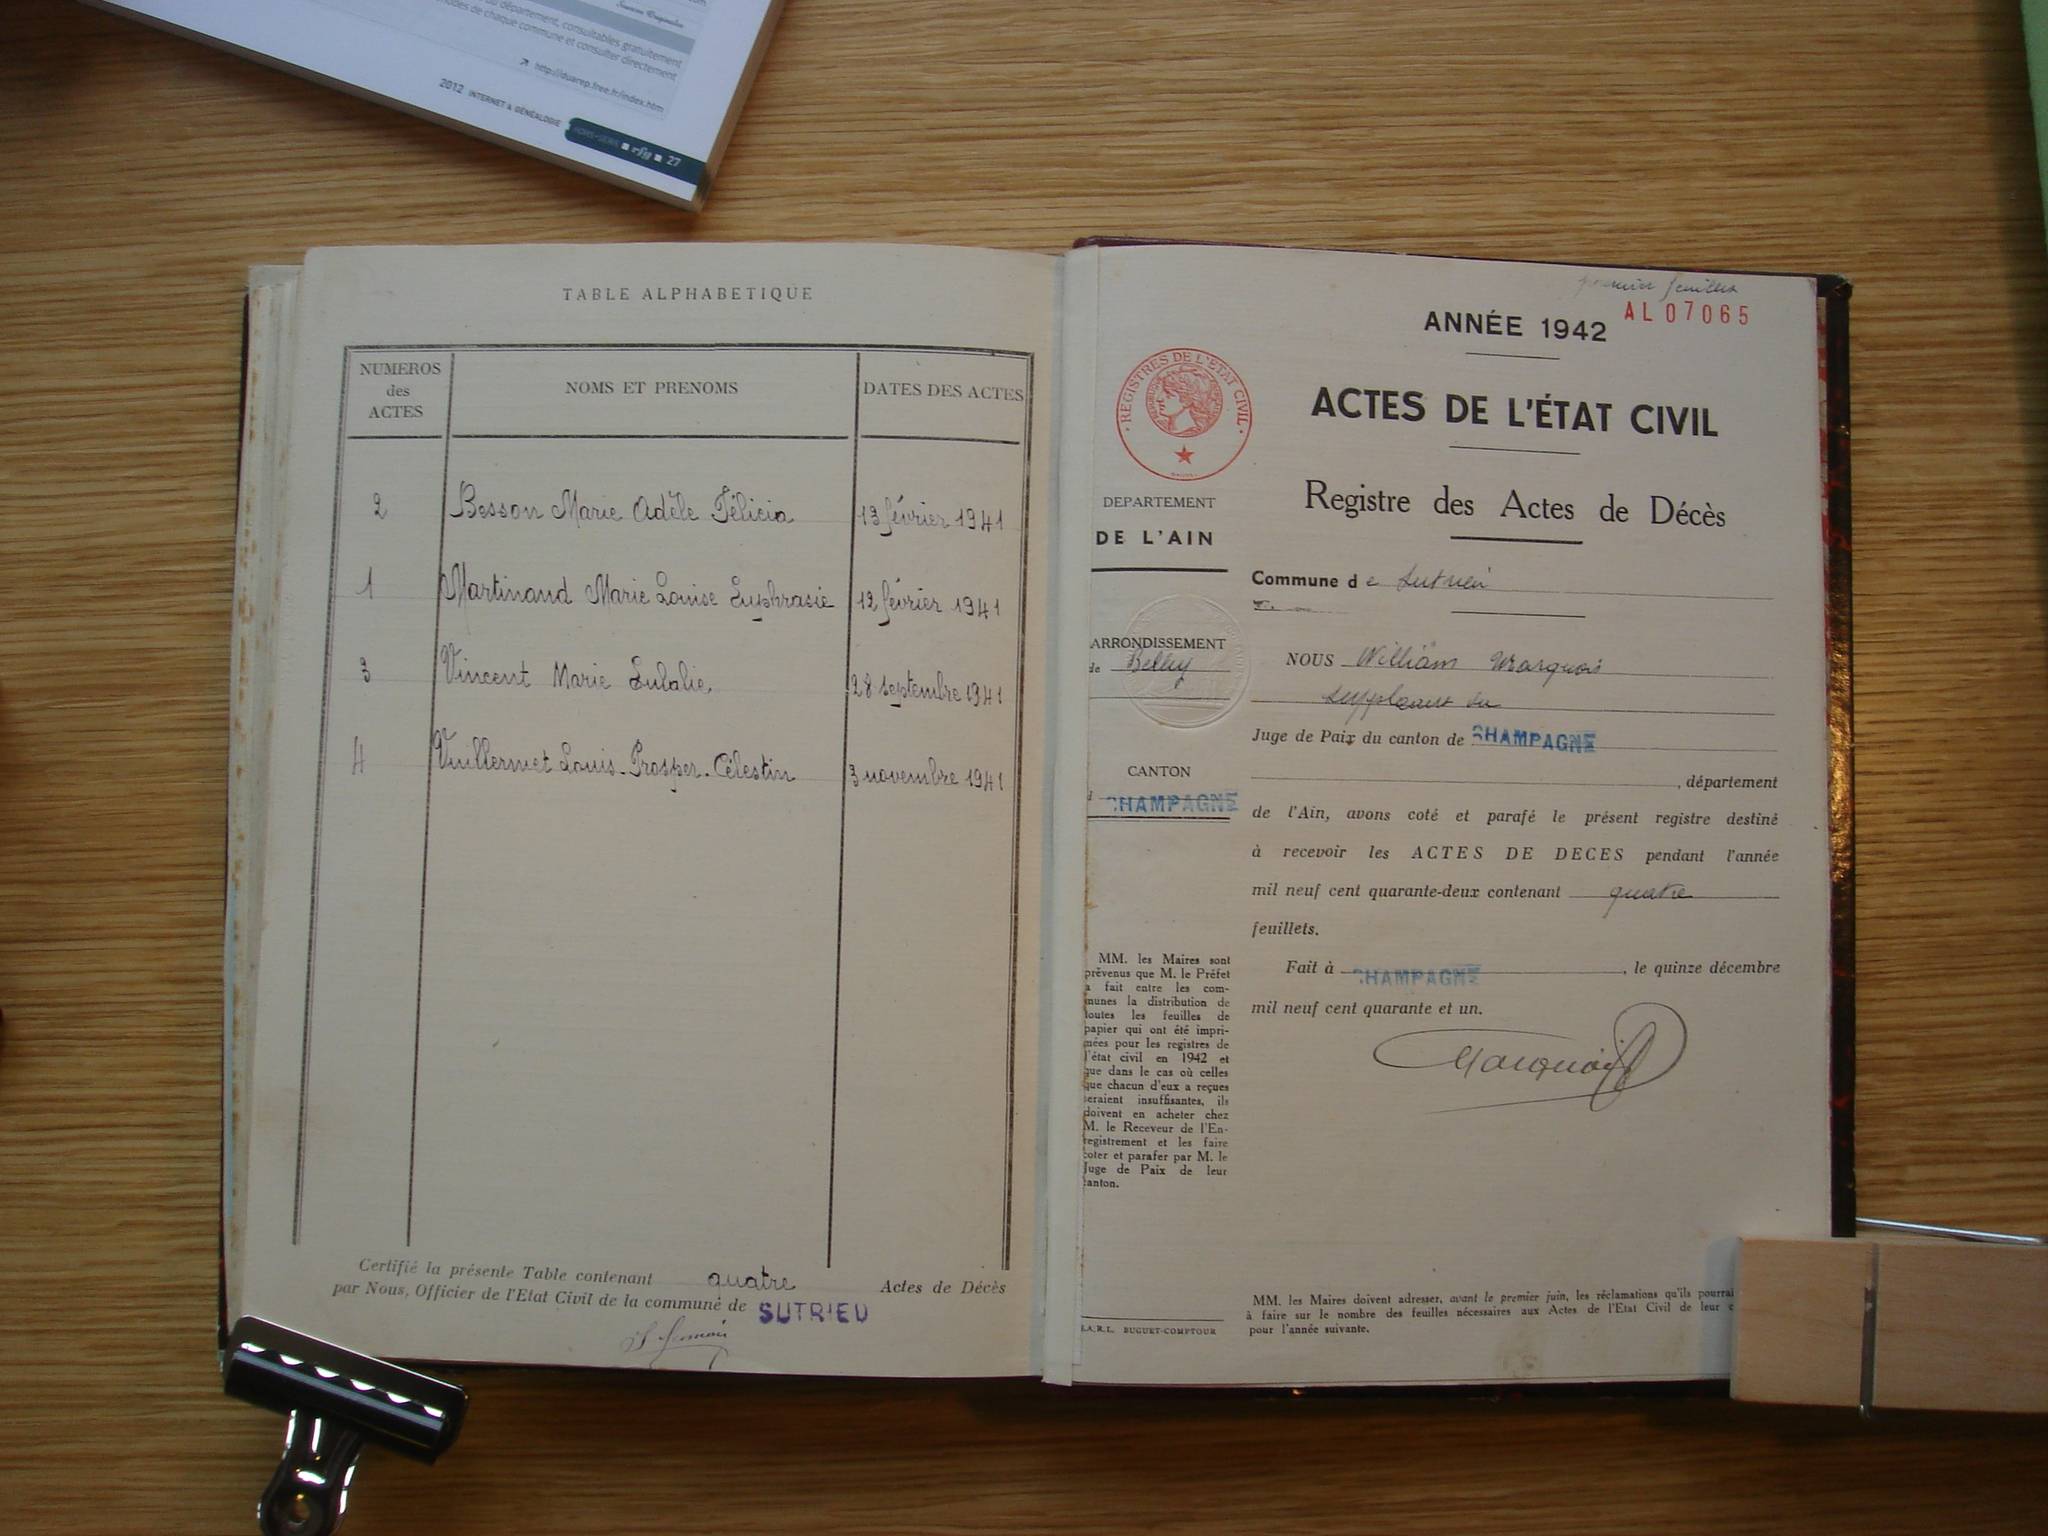 du département, consultables gratuitement
modes de chaque commune et consulter directement
http://duarep.free.fr/index.htm
2012 INTERNET & GÉNÉALOGIE HORS-SÉRIE rfg 27
TABLE ALPHABETIQUE
NUMEROS des ACTES NOMS ET PRENOMS DATES DES ACTES
2 Besson Marie Adèle Félicia 13 février 1941
1 Martinand Marie Louise Euphrasie 12 février 1941
3 Vincent Marie Eulalie, 28 septembre 1941
4 Vuillermet Louis-Prosper-Célestin 3 novembre 1941
Certifié la présente Table contenant quatre Actes de Décès
par Nous, Officier de l'Etat Civil de la commune de SUTRIEU
premier feuillet
AL 07065
ANNÉE 1942
REGISTRES DE L'ÉTAT CIVIL
ACTES DE L'ÉTAT CIVIL
Registre des Actes de Décès
DEPARTEMENT
DE L'AIN
Commune de Sutrieu
ARRONDISSEMENT
de Belley
NOUS William Marquois
suppléant du
Juge de Paix du canton de CHAMPAGNE
CANTON
d CHAMPAGNE
, département
de l'Ain, avons coté et parafé le présent registre destiné
à recevoir les ACTES DE DECES pendant l'année
mil neuf cent quarante-deux contenant quatre
feuillets.
Fait à CHAMPAGNE, le quinze décembre
mil neuf cent quarante et un.
Marquois
MM. les Maires sont
prévenus que M. le Préfet
a fait entre les com-
munes la distribution de
toutes les feuilles de
papier qui ont été impri-
mées pour les registres de
l'état civil en 1942 et
que dans le cas où celles
que chacun d'eux a reçues
seraient insuffisantes, ils
doivent en acheter chez
M. le Receveur de l'En-
registrement et les faire
coter et parafer par M. le
Juge de Paix de leur
canton.
S.A.R.L. BUGUET-COMPTOUR
MM. les Maires doivent adresser, avant le premier juin, les réclamations qu'ils pourrai
à faire sur le nombre des feuilles nécessaires aux Actes de l'Etat Civil de leur c
pour l'année suivante.